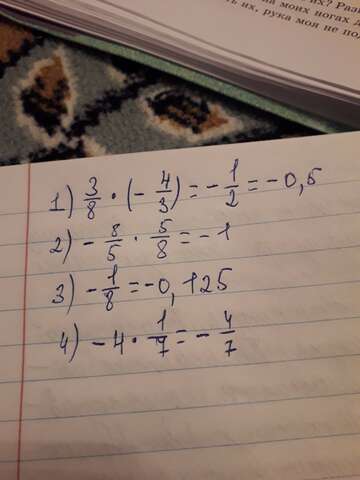 их? Разв
на моих ногах
ть их, рука моя не по
1) 3/8 · (- 4/3) = - 1/2 = -0,5
2) - 8/5 · 5/8 = -1
3) - 1/8 = -0,125
4) -4 · 1/7 = - 4/7